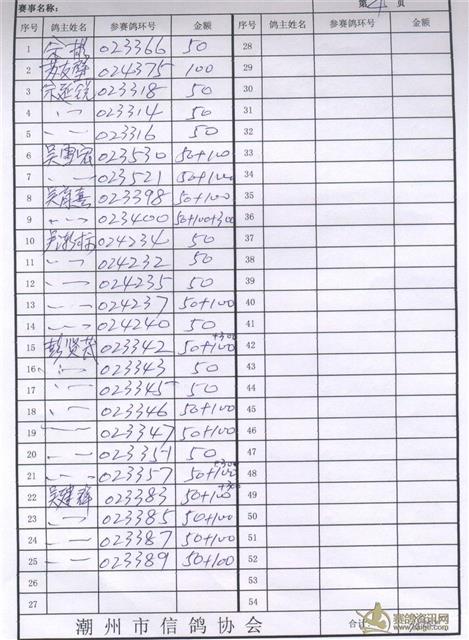 赛事名称： 第 4 页
序号 鸽主姓名 参赛鸽环号 金额 序号 鸽主姓名 参赛鸽环号 金额
1 023366 50 28
2 024375 100 29
3 023318 50 30
4 〃 023314 50 31
5 〃 02316 50 32
6 023530 50+100 33
7 〃 023521 50+100 34
8 023398 50+100 35
9 〃 023400 50+100+300 36
10 024234 50 37
11 〃 024232 50 38
12 〃 024235 50 39
13 〃 024237 50+100 40
14 〃 024240 50 41
15 彭贤茂 023342 50+100+300 42
16 〃 023343 50 43
17 〃 023345 50 44
18 〃 023346 50+100 45
19 〃 023347 50+100 46
20 〃 023351 50 47
21 〃 023357 50+100+300 48
22 吴建辉 023383 50+100+300 49
23 〃 023385 50+100 50
24 〃 023387 50+100 51
25 〃 023389 50+100 52
26 53
27 54
潮州市信鸽协会 合计
赛鸽资讯网